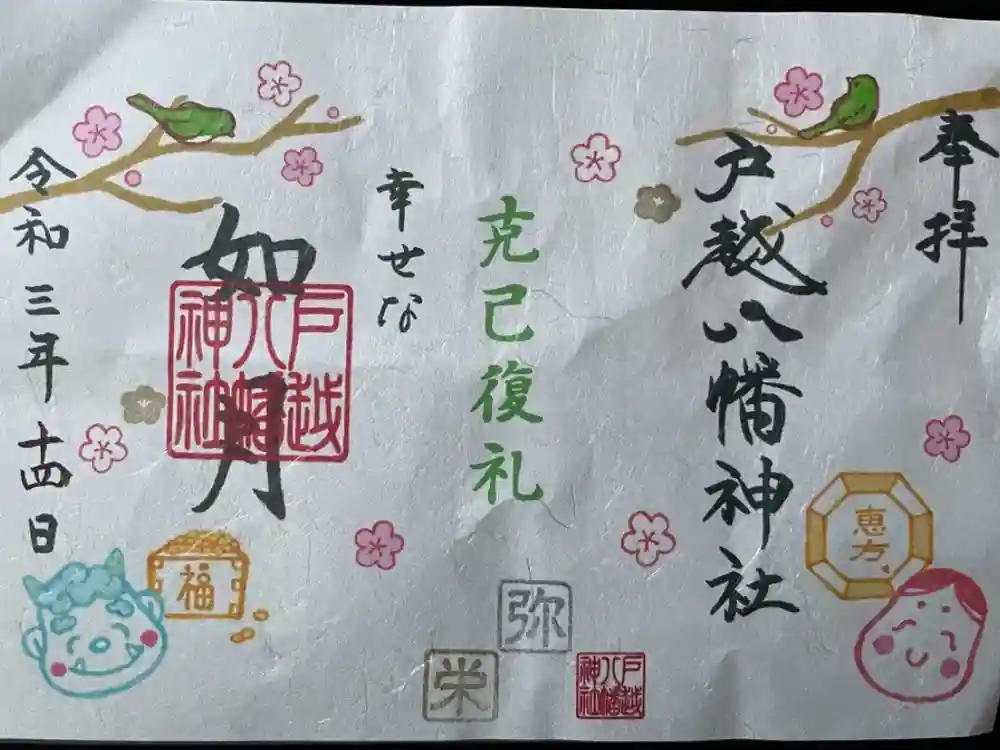 奉拝
戸越八幡神社
恵方
克己復礼
弥
栄
戸越八幡神社
幸せな
如月
戸越八幡神社
福
令和三年十四日